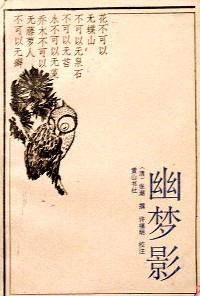 花不可以
无蝶山
不可以无泉石
不可以无苔
水不可以无藻
乔木不可以
无藤萝人
不可以无癖
幽梦影
〔清〕张潮 撰 许福明 校注
黄山书社